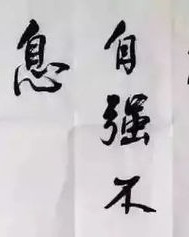 自强不
息